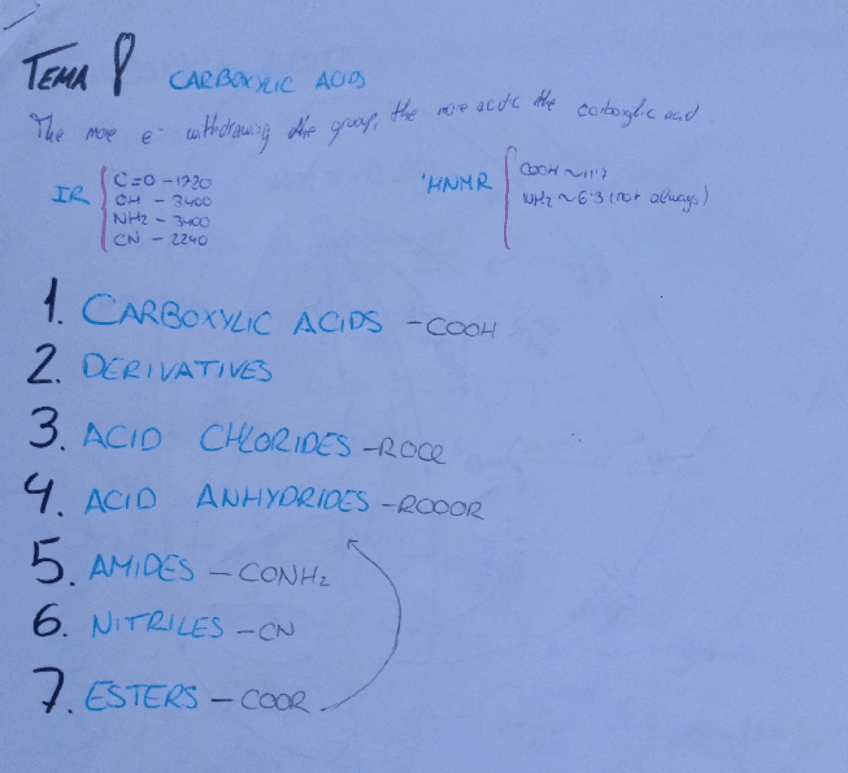 TEMA 8 CARBOXYLIC ACIDS
The more e- withdrawing the group, the more acidic the carboxylic acid
IR
C=O - 1720
OH - 3400
NH2 - 3400
CN - 2240
'HNMR
COOH ~11.7
NH2 ~ 6.3 (not always)
1. CARBOXYLIC ACIDS - COOH
2. DERIVATIVES
3. ACID CHLORIDES - ROCl
4. ACID ANHYDRIDES - ROOOR
5. AMIDES - CONH2
6. NITRILES - CN
7. ESTERS - COOR